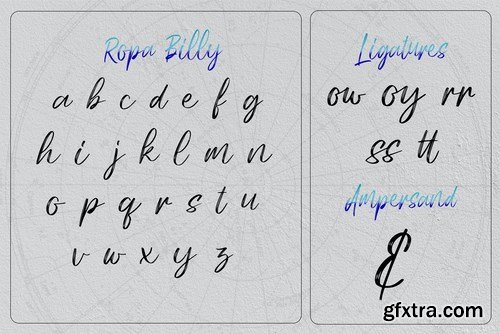 Ropa Billy
a b c d e f g
h i j k l m n
o p q r s t u
v w x y z
Ligatures
ow oy rr
ss tt
Ampersand
&
gfxtra.com